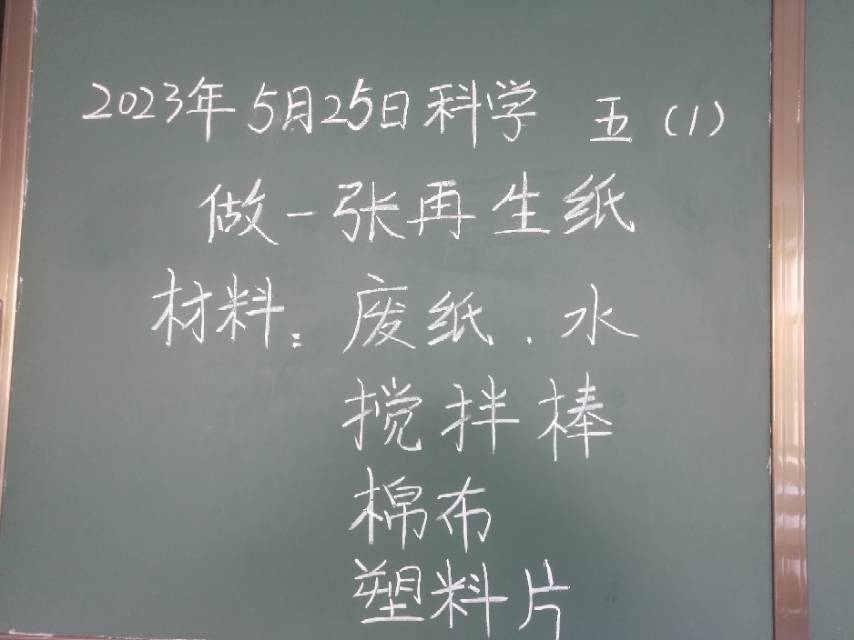 2023年5月25日科学 五(1)
做一张再生纸
材料:废纸、水
搅拌棒
棉布
塑料片